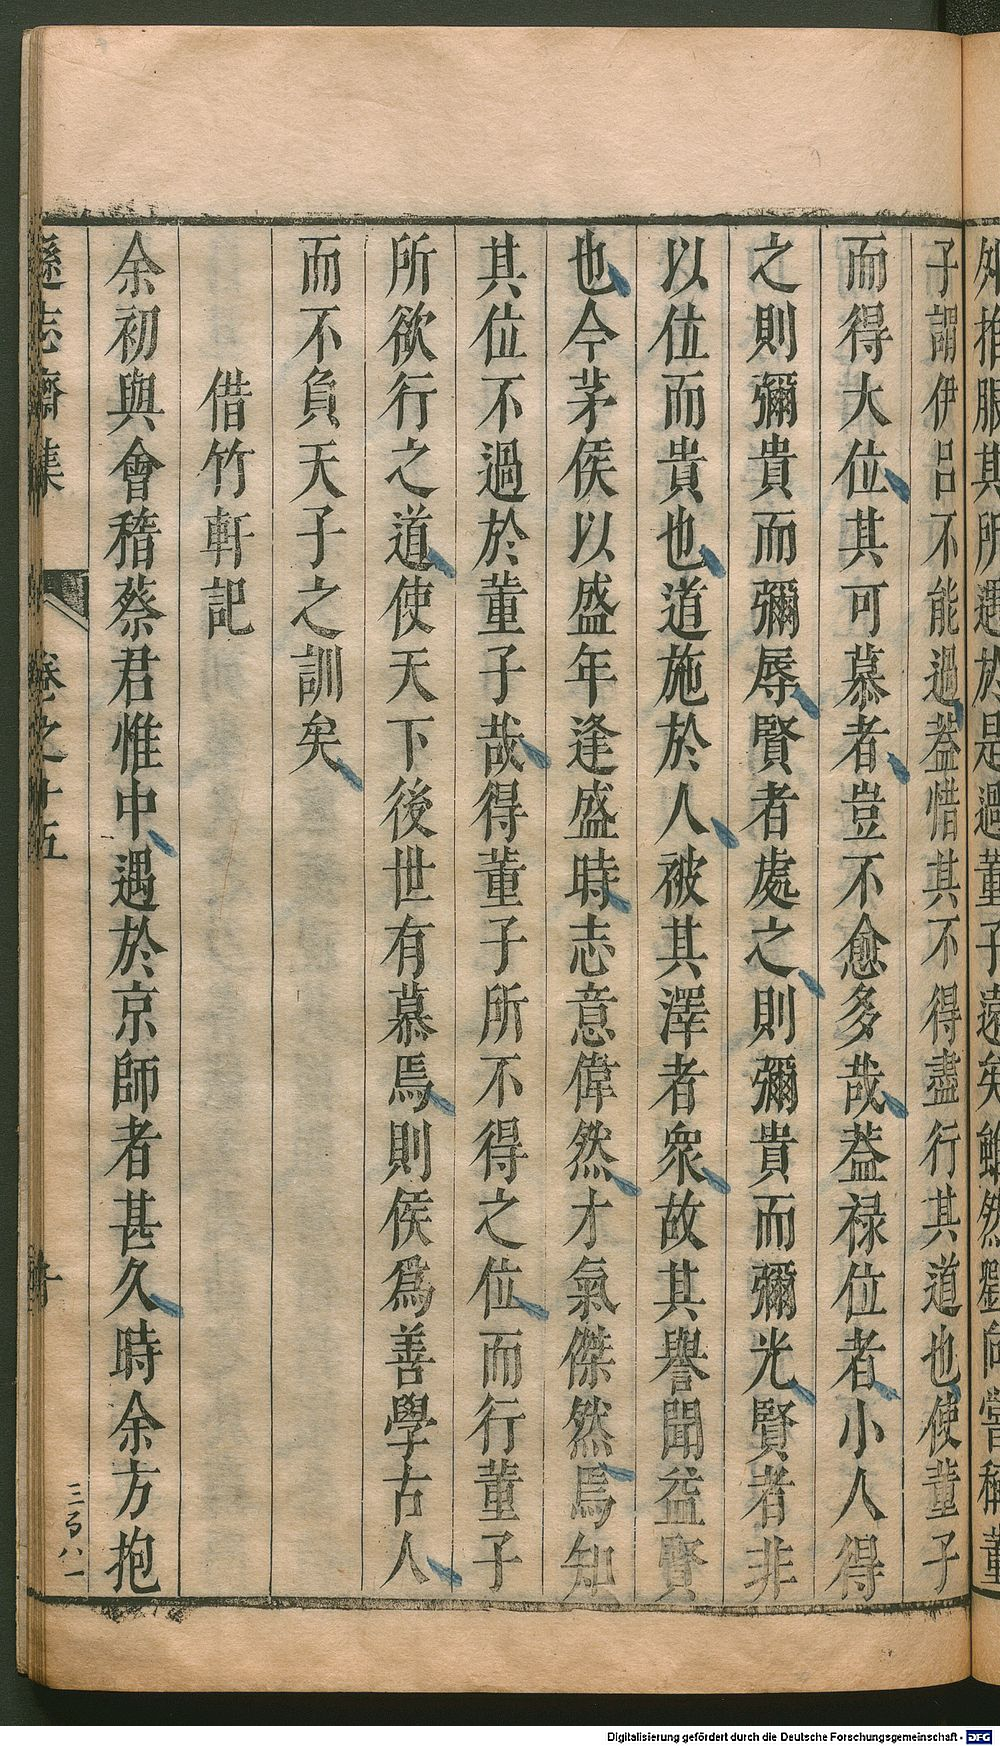 推服其所遇於是過董子遠矣雖然劉向嘗稱董
子謂伊呂不能過葢惜其不得盡行其道也使董子
而得大位其可慕者豈不愈多哉葢祿位者小人得
之則彌貴而彌辱賢者處之則彌貴而彌光賢者非
以位而貴也道施於人被其澤者衆故其譽聞益賢
也今茅侯以盛年逢盛時志意偉然才氣傑然焉知
其位不過於董子哉得董子所不得之位而行董子
所欲行之道使天下後世有慕焉則侯爲善學古人
而不負天子之訓矣
借竹軒記
余初與會稽蔡君惟中遇於京師者甚久時余方抱
遜志齋集 卷之十五 十
三百八一
Digitalisierung gefördert durch die Deutsche Forschungsgemeinschaft - DFG